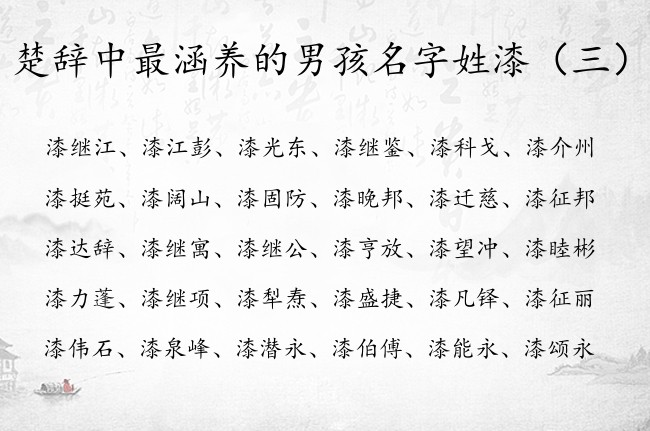 楚辞中最涵养的男孩名字姓漆（三）
漆继江、漆江彭、漆光东、漆继鉴、漆科戈、漆介州
漆挺苑、漆阔山、漆固防、漆晚邦、漆迁慈、漆征邦
漆达辞、漆继寓、漆继公、漆亨放、漆望冲、漆睦彬
漆力蓬、漆继项、漆犁焘、漆盛捷、漆凡铎、漆征丽
漆伟石、漆泉峰、漆潜永、漆伯傅、漆能永、漆颂永